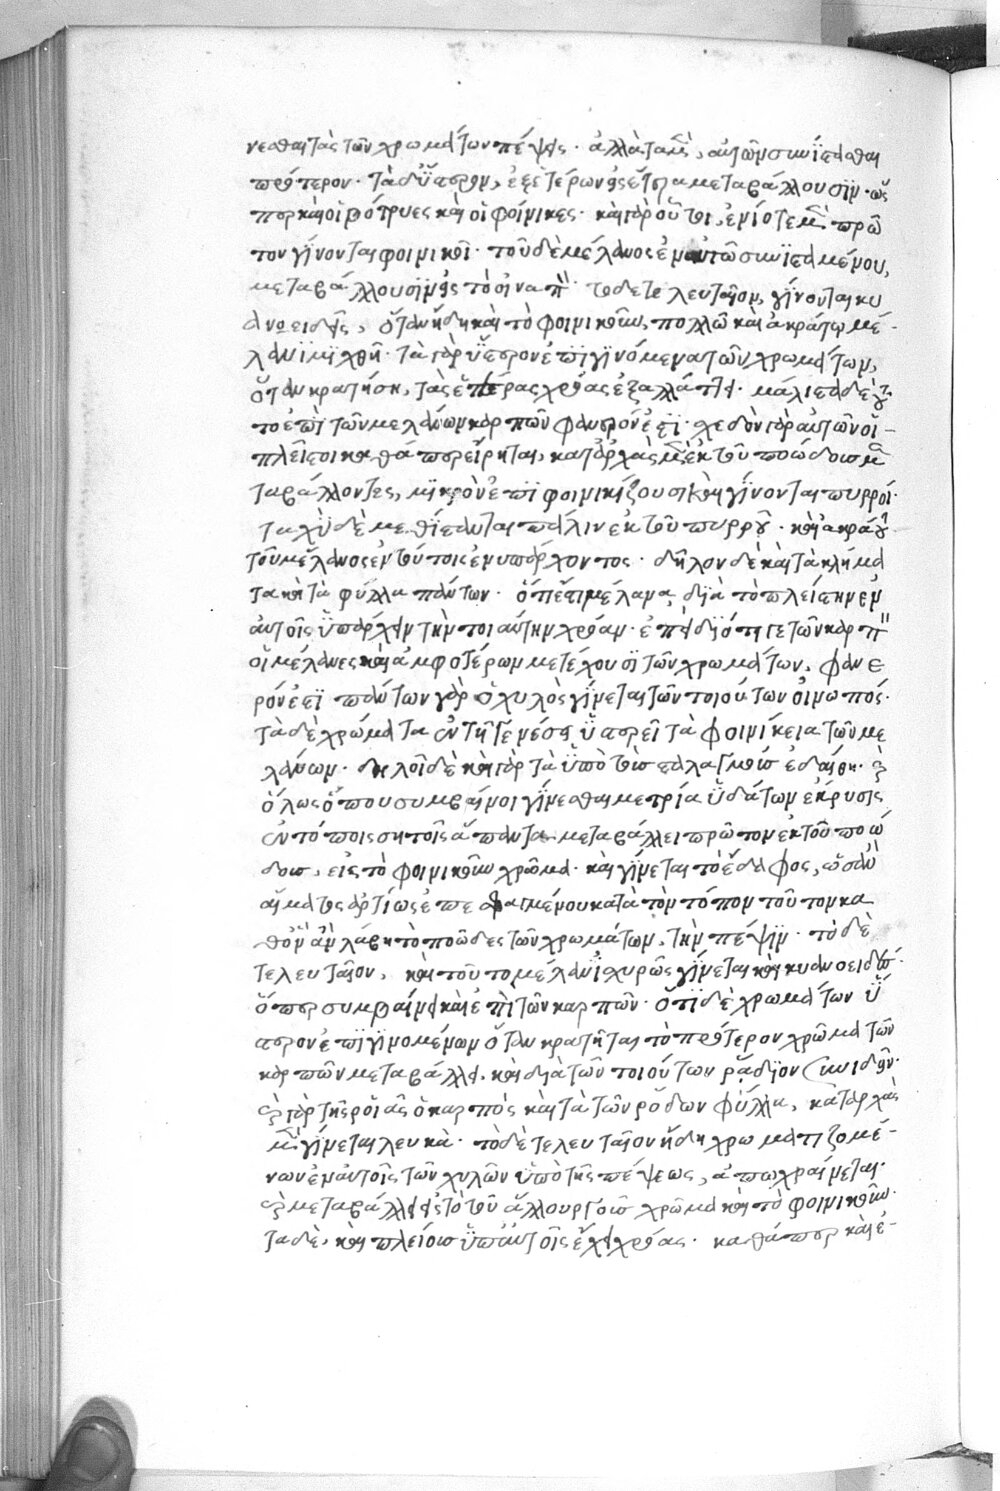 νεσθαι τὰς τῶν χρωμάτων πέψεις· ἀλλὰ τὰ μὲν, αὐτῶν συνίστασθαι
πρότερον· τὰ δ' ὕστερον, ἐξ ἑτέρων εἰς ἕτερα μεταβάλλουσιν· ὥσ
περ καὶ οἱ βότρυες καὶ οἱ φοίνικες· καὶ γὰρ οὗτοι, ἐνίοτε μὲν πρῶ
τον γίνονται φοινικοῖ· τοῦ δὲ μέλανος ἐν αὐτῶ συνισταμένου,
μεταβάλλουσιν εἰς τὸ οἰναπ τὸ δὲ τελευταῖον, γίνονται κυ
ανοειδεῖς, ὅταν ἤδη καὶ τὸ φοινικοῦν, πολλῶ καὶ ἀκράτω μέ-
λανι μιχθῆ· τὰ γὰρ ὕστερον ἐπιγινόμενα τῶν χρωμάτων,
ὅταν κρατήση, τὰς ἑτέρας χρόας ἐξαλλάττει· μάλιστα δὲ τοῦ
το ἐπὶ τῶν μελάνων καρπῶν φανερόν ἐστι· σχεδὸν γὰρ αὐτῶν οἱ-
πλεῖστοι καθάπερ εἴρηται, κατ' ἀρχὰς μὲν ἐκ τοῦ ποώδους με
ταβάλλοντες, μικρὸν ἐπιφοινικίζουσι καὶ γίνονται πυρροί·
ταχὺ δὲ μεθίστανται πάλιν ἐκ τοῦ πυρροῦ· καὶ ἀκράτου
τοῦ μέλανος ἐν τούτοις ἐνυπάρχοντος· δῆλον δὲ καὶ τὰ κλήμα
τα καὶ τὰ φύλλα πάντων· ὅπέστι μέλανα, διὰ τὸ πλείστην ἐν
αὐτοῖς ὑπάρχειν τὴν τοιαύτην χρόαν· ἐπεὶ διότι γε τῶν καρπ
οἱ μέλανες καὶ ἀμφοτέρων μετέχουσι τῶν χρωμάτων, φανε
ρόν ἐστι πάντων γὰρ ὁ χυλὸς γίνεται τῶν τοιούτων οἰνωπός·
τὰ δὲ χρώματα ἐν τῇ γενέσει ὕστερεῖ τὰ φοινίκεια τῶν με
λάνων· δηλοῖ δὲ καὶ γὰρ τὰ ὑπὸ τοὺς σταλαγμοὺς ἐδάφη· καὶ
ὅλως ὅπου συμβαίνοι γίνεσθαι μετρία ὑδάτων ἔκρυσις
ἐν τόποις σητοῖς ἅπαντα μεταβάλλει πρῶτον ἐκ τοῦ ποώ
δους, εἰς τὸ φοινικοῦν χρῶμα· καὶ γίνεται τὸ ἔδαφος, ὡσὰν
αἵματος ἀρτίως ἐπεσφαγμένου κατὰ τὸν τόπον τοῦτον κα
θ' ὃν ἂν λάβη τὸ ποῶδες τῶν χρωμάτων, τὴν πέψιν· τὸ δὲ
τελευταῖον, καὶ τοῦτο μέλαν ἰσχυρῶς γίνεται καὶ κυανοειδές·
ὅπερ συμβαίνει καὶ ἐπὶ τῶν καρπῶν· ὅτι δὲ χρωμάτων ὕ
στερον ἐπιγινομένων ὅταν κρατῆται τὸ πρότερον χρῶμα τῶν
καρπῶν μεταβάλλει, καὶ διὰ τῶν τοιούτων ῥάδιον συνιδεῖν·
καὶ γὰρ τῆς ροιᾶς ὁ καρπὸς καὶ τὰ τῶν ρόδων φύλλα, κατ' ἀρχὰς
μὲν γίνεται λευκὰ· τὸ δὲ τελευταῖον ἤδη χρωματιζομέ-
νων ἐν αὐτοῖς τῶν χυλῶν ὑπὸ τῆς πέψεως, ἀποχραίνεται·
καὶ μεταβάλλει εἰς τὸ τοῦ ἁλλουργοῦς χρῶμα καὶ τὸ φοινικοῦν·
τὰ δὲ, καὶ πλείους ὑπ' αὐτοῖς ἔχει χρόας· καθάπερ καὶ ἐ-